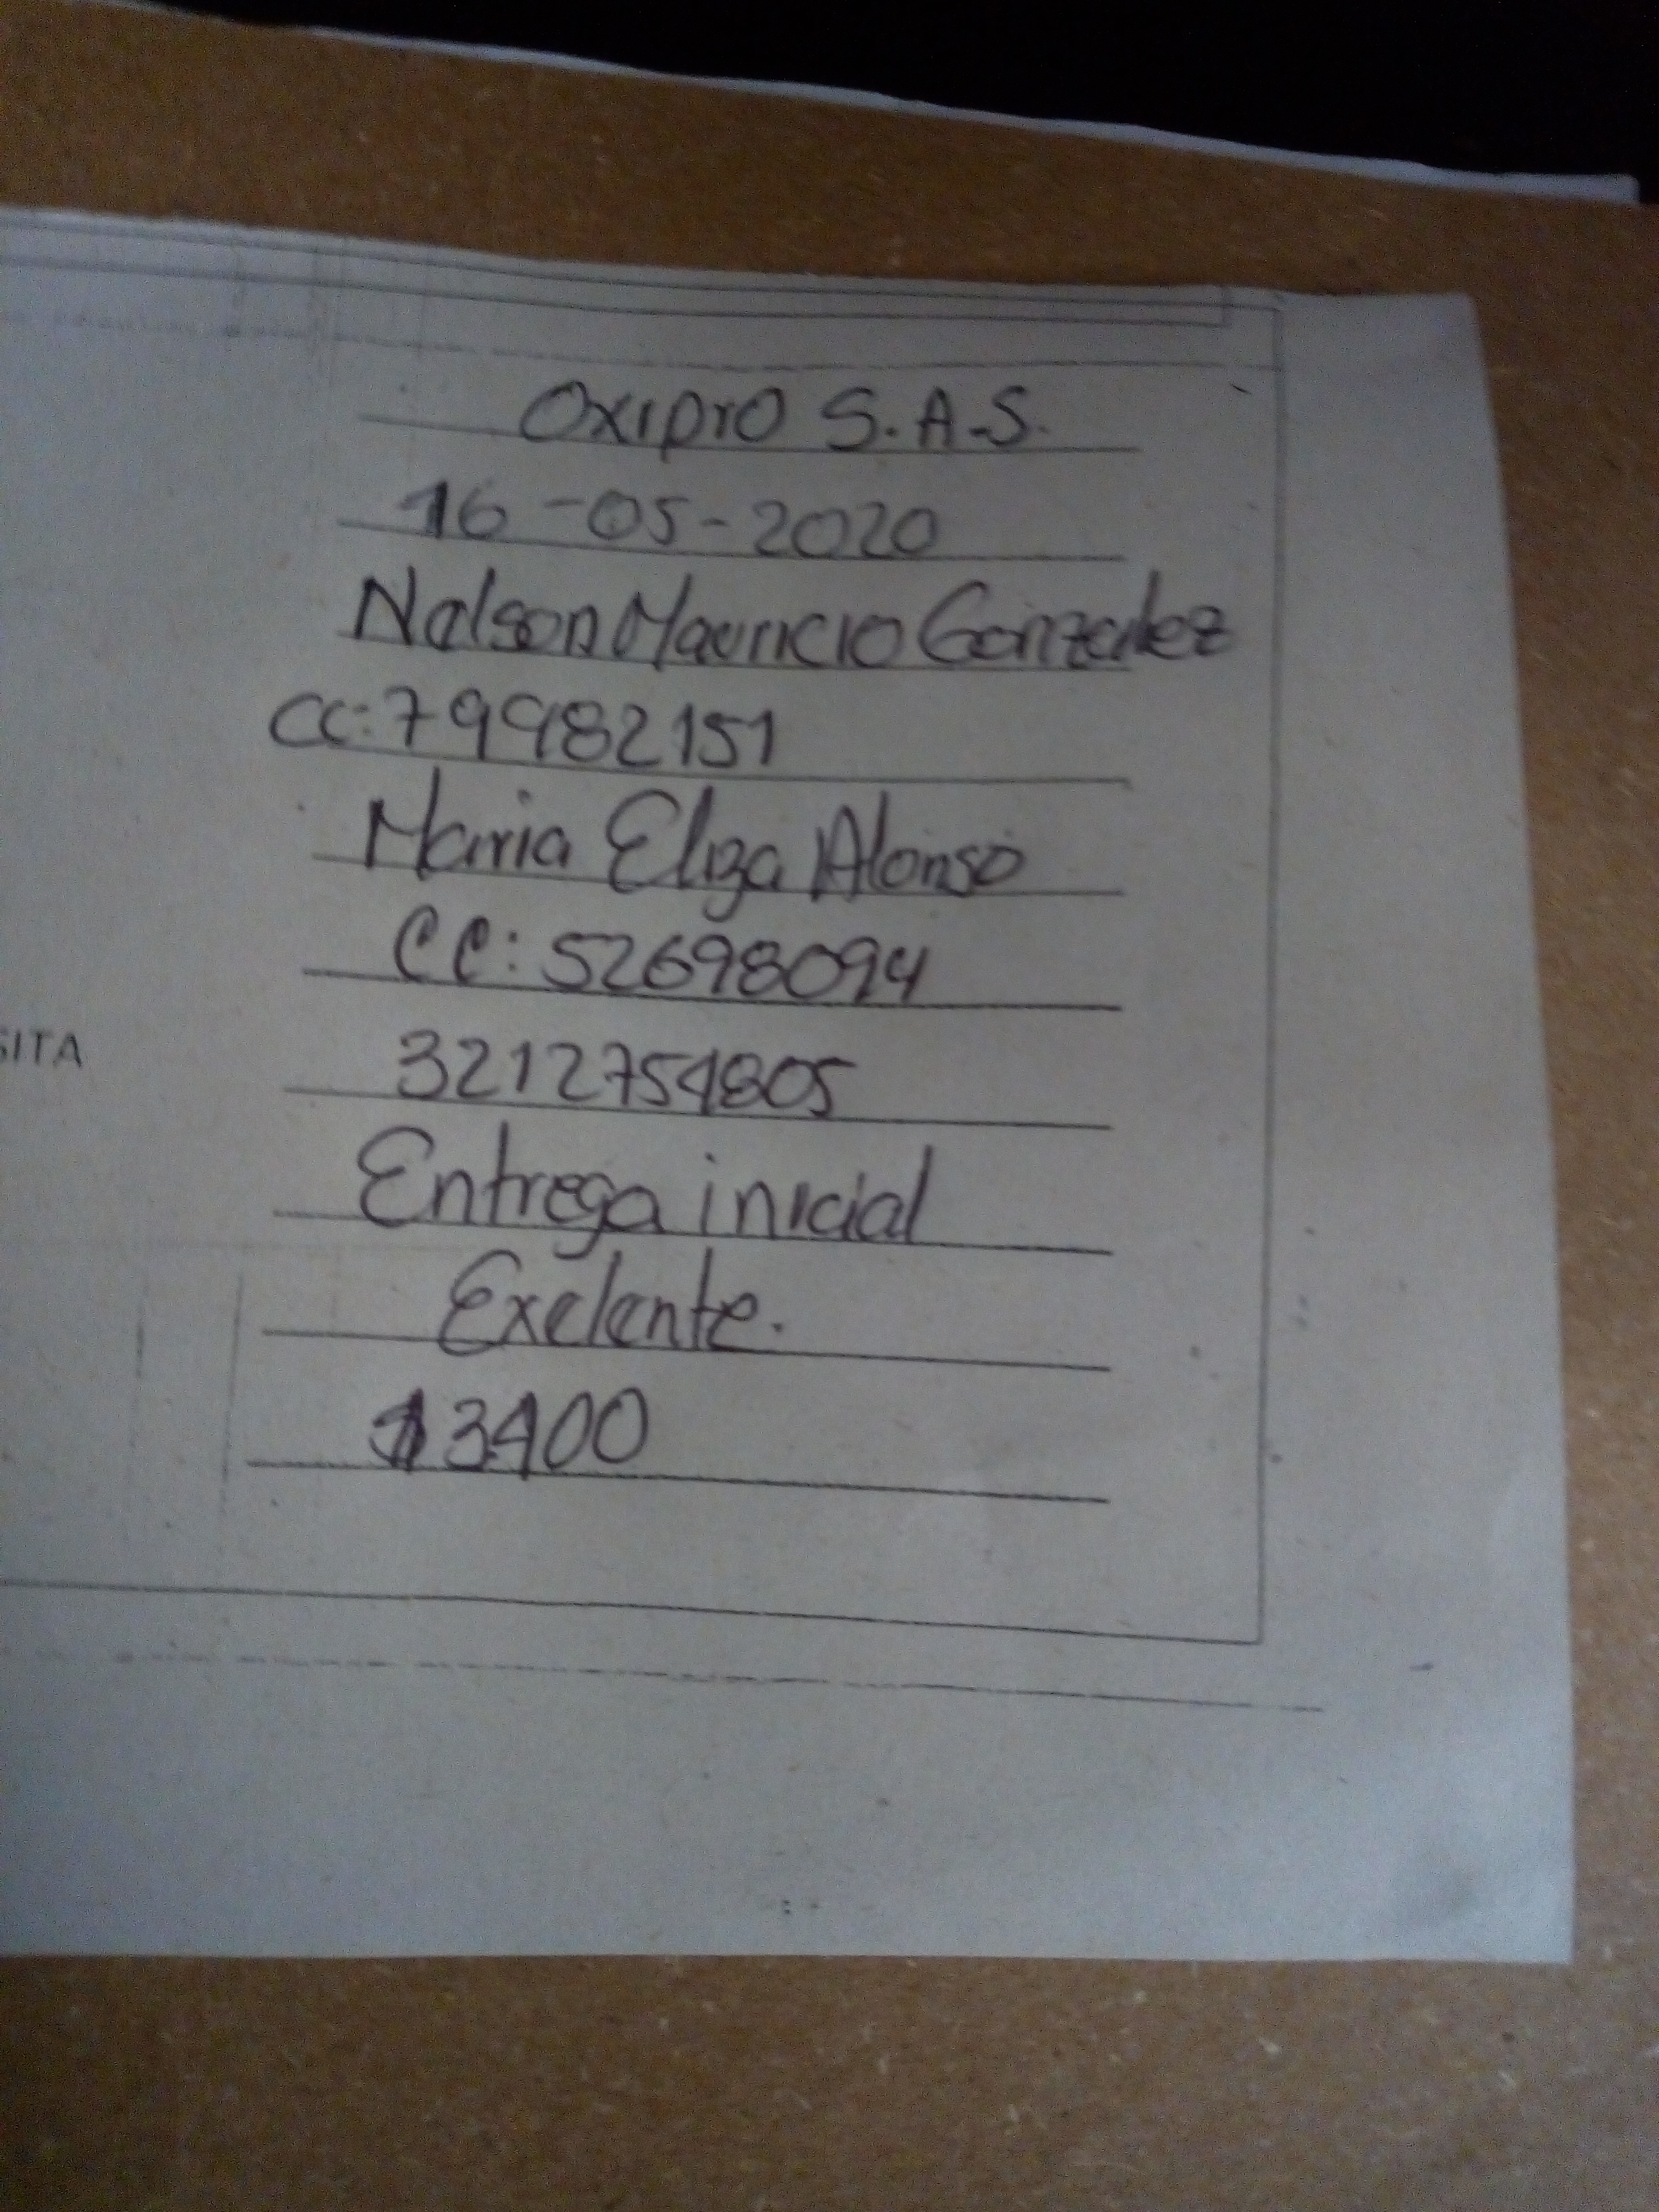 Oxipro S.A.S.
16-05-2020
Nelson Mauricio Gonzalez
CC: 79982151
Maria Eliza Alonso
CC: 52698094
SITA
3212754805
Entrega inicial
Exelente.
13400